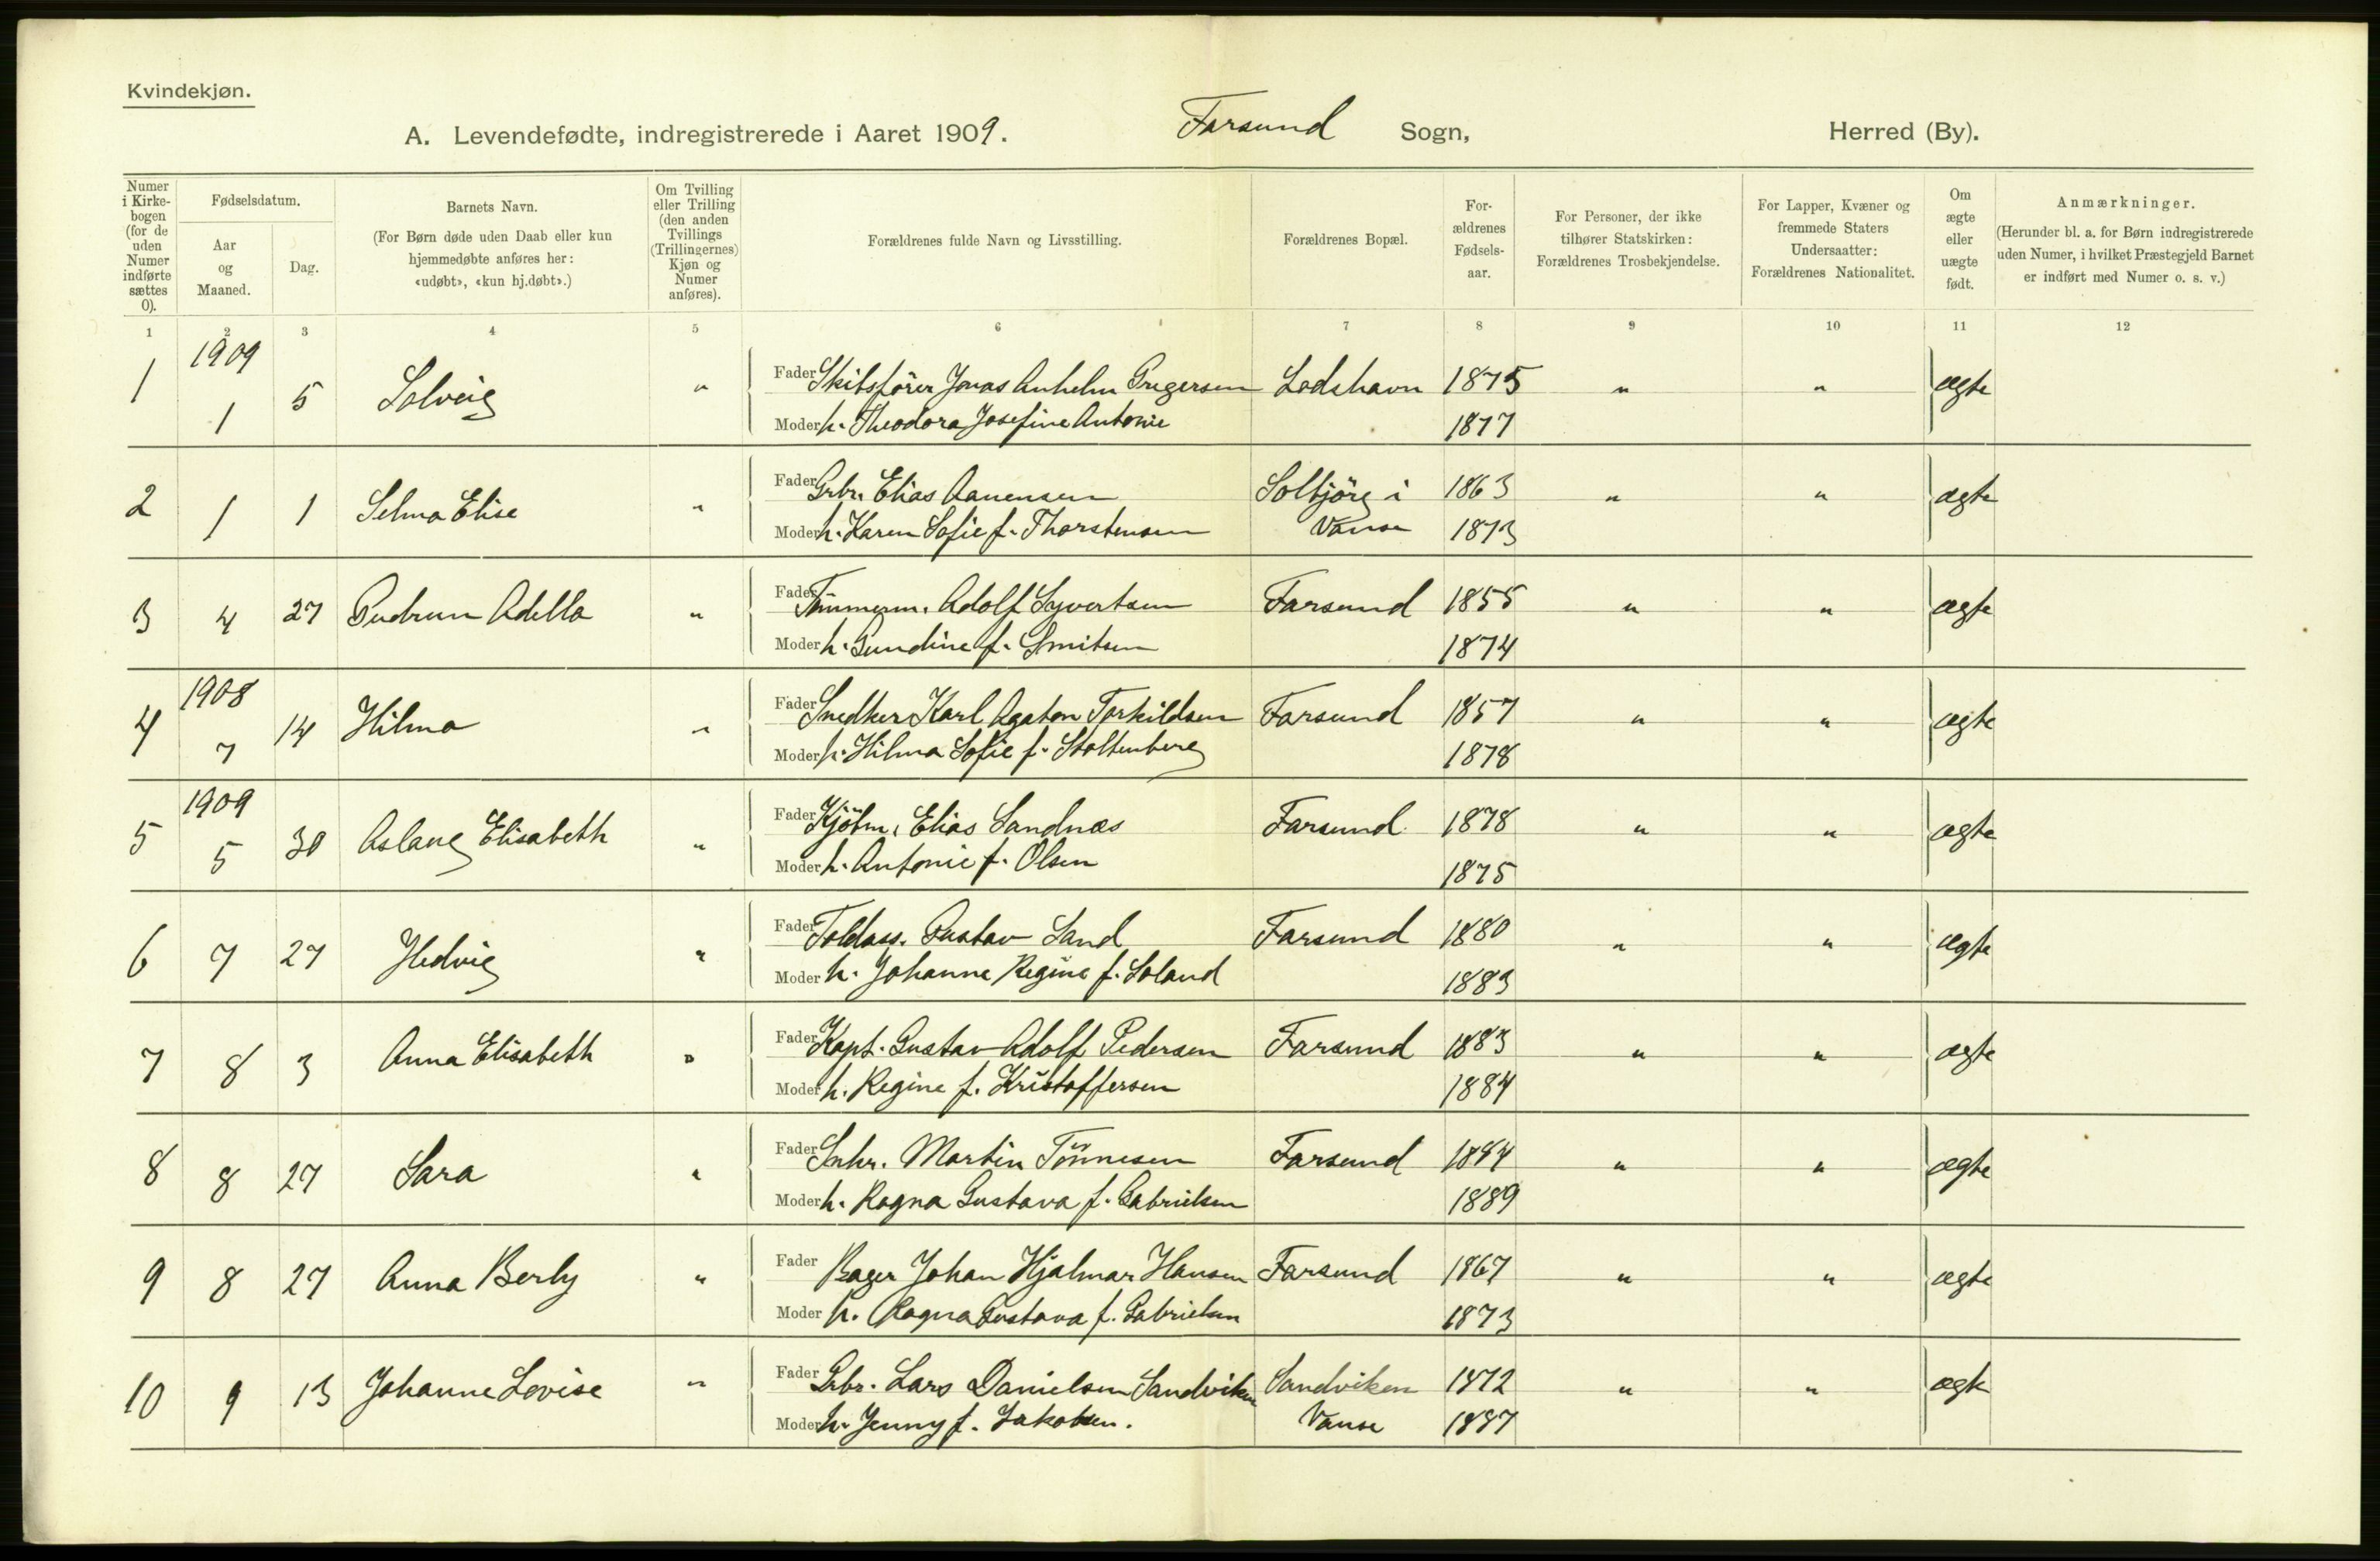 Kvindekjøn.
A. Levendefødte, indregistrerede i Aaret 1909. Farsund Sogn, Herred (By).
Numer i Kirkebogen (for de uden Numer indførte sættes 0).
Fødselsdatum.
Aar og Maaned.
Dag.
Barnets Navn.
(For Børn døde uden Daab eller kun hjemmedøbte anføres her: «udøbt», «kun hj.døbt».)
Om Tvilling eller Trilling (den anden Tvillings (Trillingernes) Kjøn og Numer anføres).
Forældrenes fulde Navn og Livsstilling.
Forældrenes Bopæl.
Forældrenes Fødselsaar.
For Personer, der ikke tilhører Statskirken: Forældrenes Trosbekjendelse.
For Lapper, Kvæner og fremmede Staters Undersaatter: Forældrenes Nationalitet.
Om ægte eller uægte født.
Anmærkninger.
(Herunder bl. a. for Børn indregistrerede uden Numer, i hvilket Præstegjeld Barnet er indført med Numer o. s. v.)
1 2 3 4 5 6 7 8 9 10 11 12
1909
1 1 5 Solveig " Fader Skibsfører Jonas Anhelm Gregersen Lodshavn 1875 " " ægte
Moder h. Theodora Josefine Antonie 1877
2 1 1 Selma Elise " Fader Grbr. Elias Aanensen Solbjörg i 1863 " " ægte
Moder h. Karen Sofie f. Thorstensen Vanse 1873
3 4 27 Gudrun Adella " Fader Tömmerm. Adolf Syvertsen Farsund 1855 " " ægte
Moder h. Gundine f. Smitsen 1874
1908
4 7 14 Hilma " Fader Snedker Karl Agaton Torkildsen Farsund 1857 " " ægte
Moder h. Hilma Sofie f. Stoltenberg 1878
1909
5 5 30 Aslaug Elisabeth " Fader Kjöbm. Elias Sandnæs Farsund 1878 " " ægte
Moder h. Antonie f. Olsen 1875
6 7 27 Hedvig " Fader Toldass. Gustav Sand Farsund 1880 " " ægte
Moder h. Johanne Regine f. Soland 1883
7 8 3 Anna Elisabeth " Fader Kapt. Gustav Adolf Pedersen Farsund 1883 " " ægte
Moder h. Regine f. Kristoffersen 1884
8 8 27 Sara " Fader Martin Tönnesen Farsund 1884 " " ægte
Moder h. Ragna Gustava f. Gabrielsen 1889
9 8 27 Anna Berly " Fader Bager Johan Hjalmar Hansen Farsund 1867 " " ægte
Moder h. Ragna Gustava f. Gabrielsen 1873
10 9 13 Johanne Lovise " Fader Grbr. Lars Danielsen Sandviken Sandviken 1872 " " ægte
Moder h. Jenny f. Jakobsen. Vanse 1887